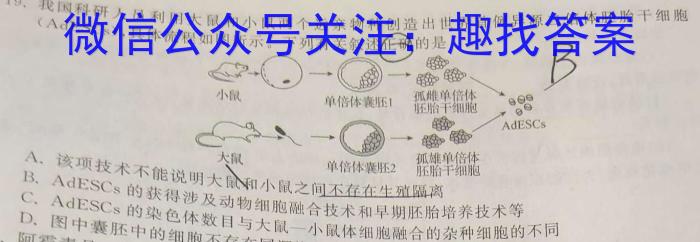 19. 我国科研人员利用大鼠和小鼠两个
胚胎干细胞
微信公众号关注：趣找答案
小鼠
单倍体囊胚1
孤雌单倍体
胚胎干细胞
AdESCs
B
大鼠
单倍体囊胚2
孤雄单倍体
胚胎干细胞
A. 该项技术不能说明大鼠和小鼠之间不存在生殖隔离
B. AdESCs 的获得涉及动物细胞融合技术和早期胚胎培养技术等
C. AdESCs 的染色体数目与大鼠—小鼠体细胞融合的杂种细胞的不同
D. 图中囊胚中的细胞不存在同源